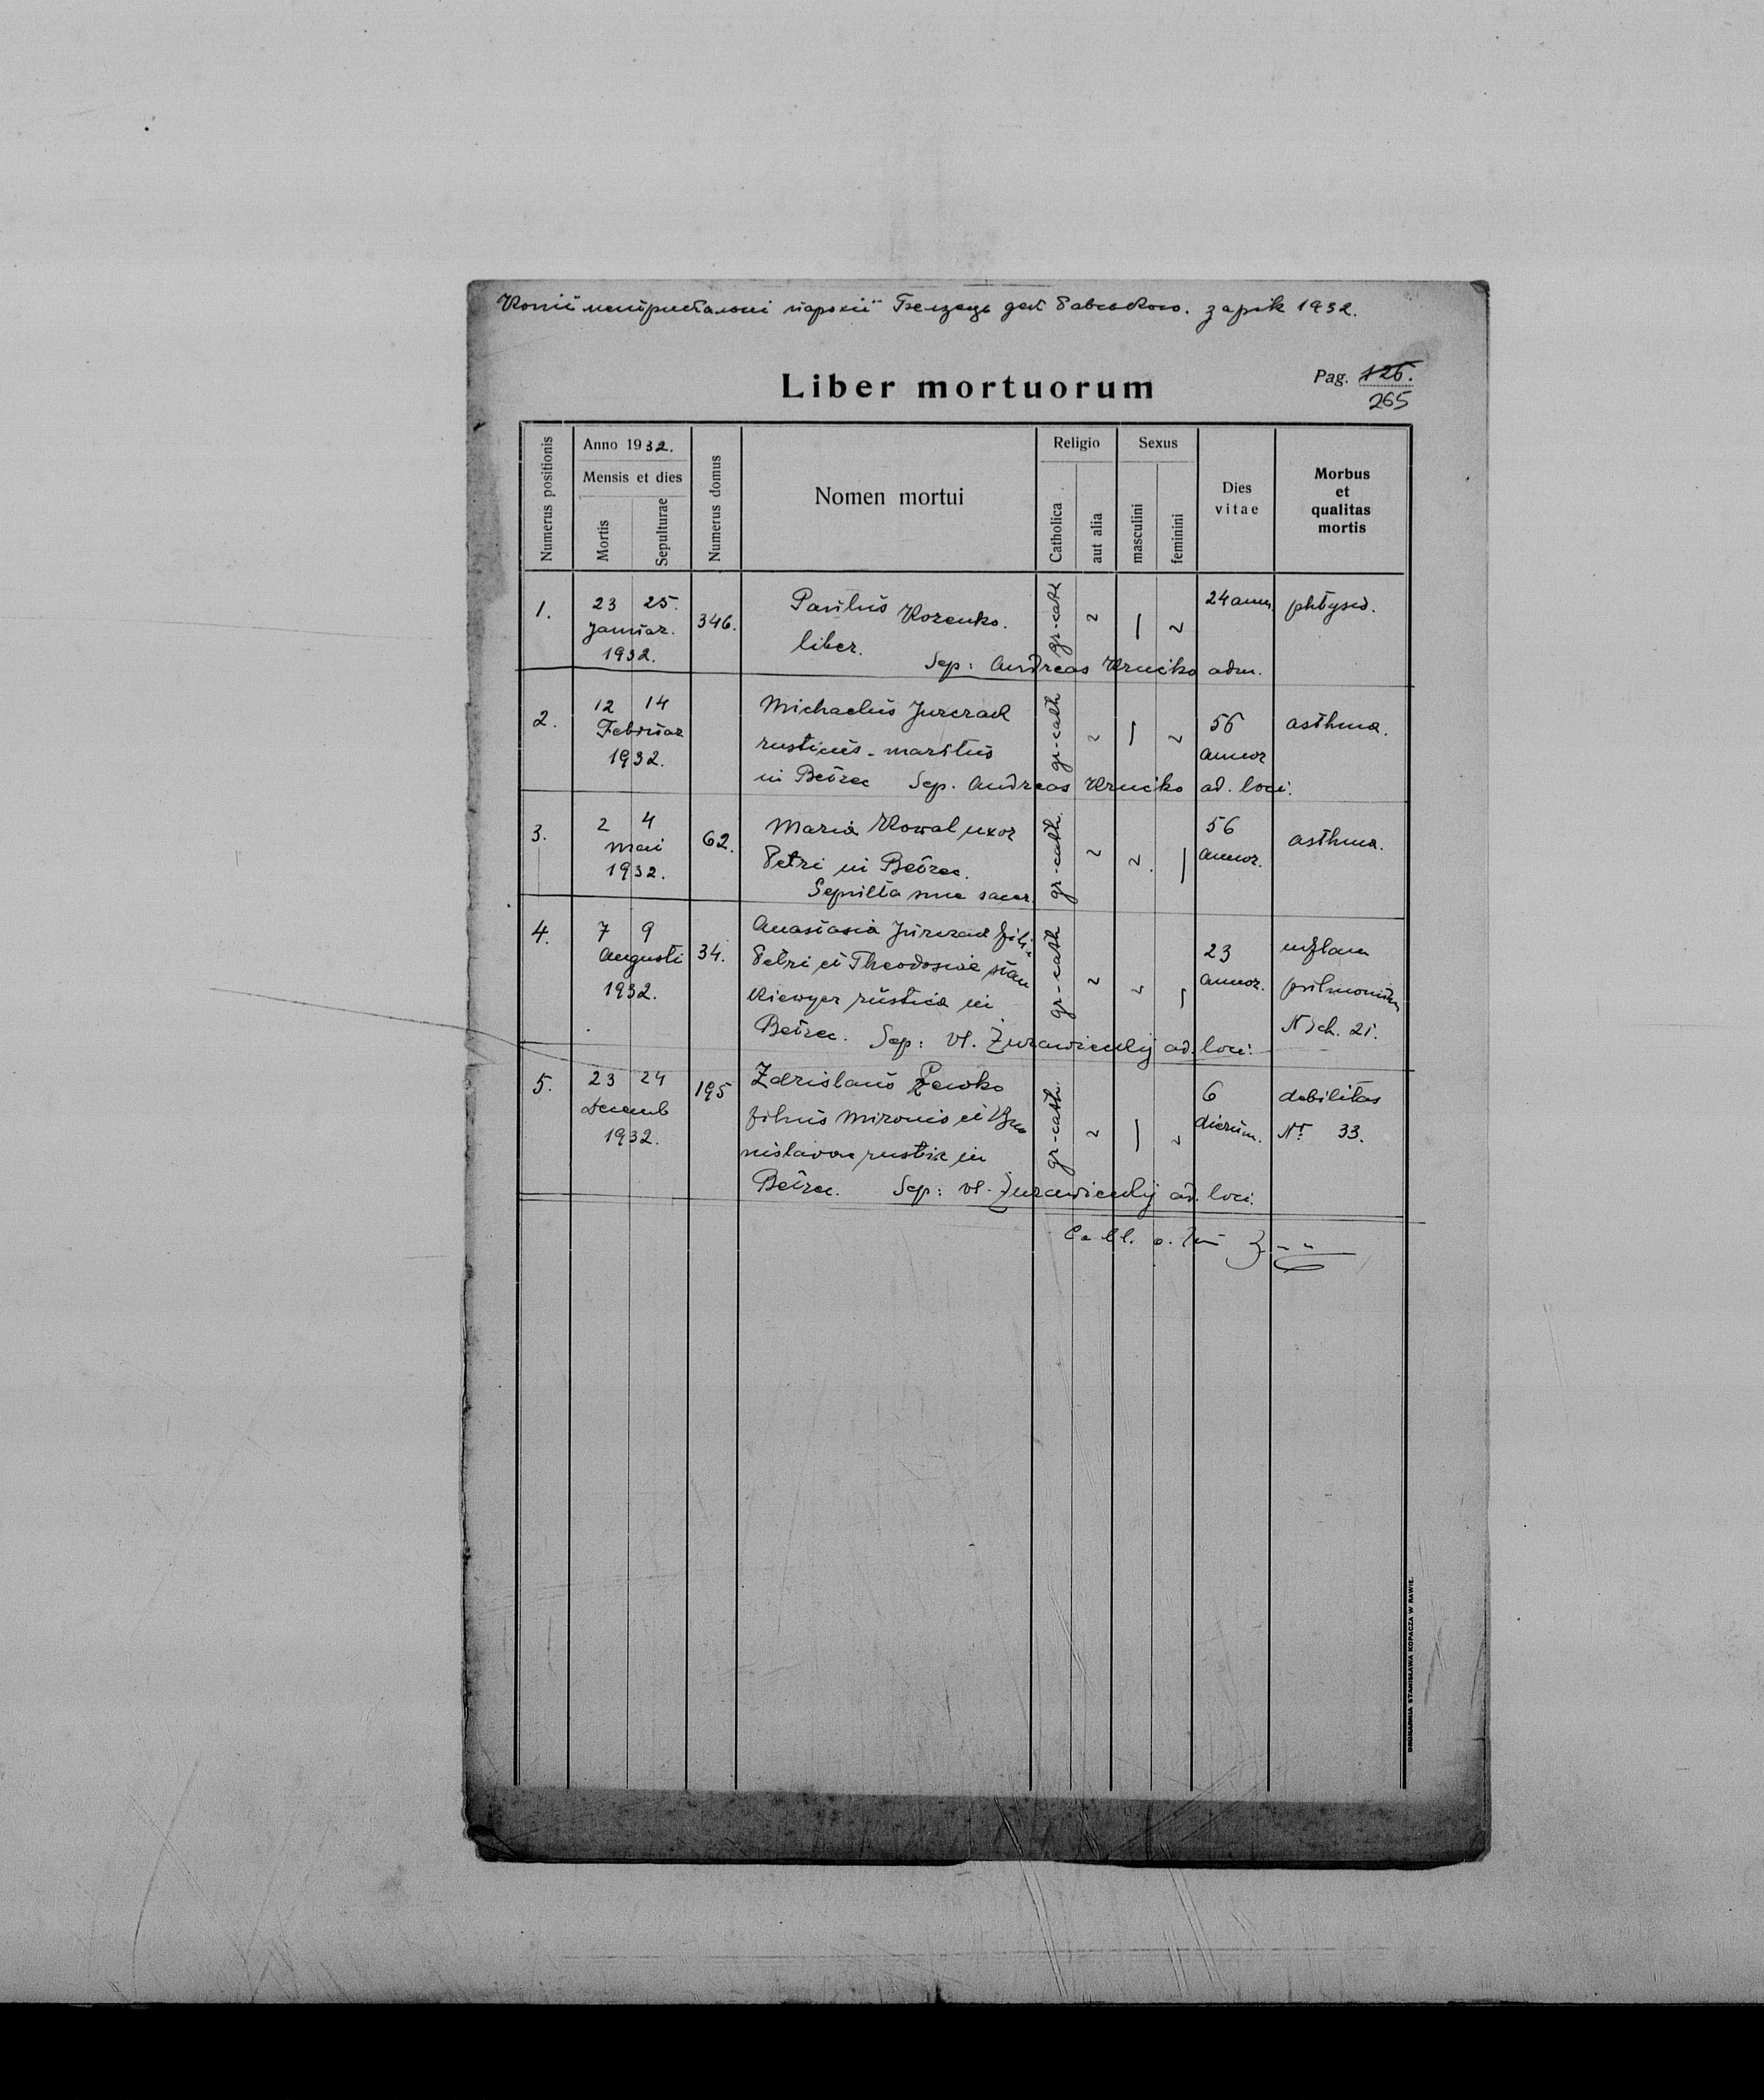 Копії метрикальні парохії Белзець дек. Равського. за рік 1932.
Liber mortuorum
Pag. 126.
265
Numerus positionis
Anno 1932.
Mensis et dies
Mortis
Sepulturae
Numerus domus
Nomen mortui
Religio
Catholica
aut alia
Sexus
masculini
feminini
Dies vitae
Morbus et qualitas mortis
1. 23 25. 346. Paulus Kozenko. gr-cath 24 annor. phtysis.
Januar. liber.
1932. Sep: Andreas Krucko adm.
2. 12 14 Michaelus Jurczak gr-cath 56 asthma.
Februar rusticus - maritus annor
1932. in Bełzec Sep. Andreas Krucko ad. loci.
3. 2 4 62. Maria Kowal uxor gr-cath. 56 asthma.
Maii Petri in Bełzec. annor.
1932. Sepulta sine sacer.
4. 7 9 34. Anastasia Jurczak fili gr-cath 23 inflam
Augusti Petri et Theodosiae annor.
1932. rustica in
Bełzec. Sep: Vl. Żurawieckyj ad. loci.
N sch. 21.
5. 23 24 195 Zdzislaus gr-cath. 6 debilitas
Decemb filius Mironis et dierum. Nr 33.
1932. rustic in
Bełzec. Sep: Vl. Żurawieckyj ad. loci.
DRUKARNIA STANISŁAWA KOPACZA W RAWIE.